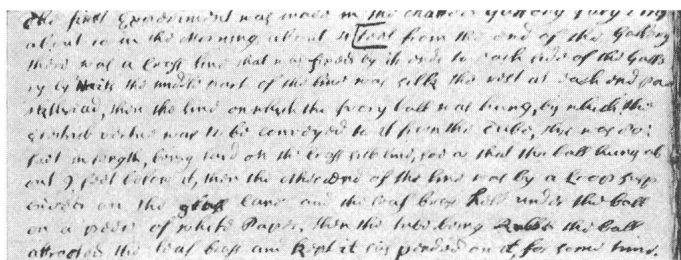 The first Experiment was made in the Gallery July
about 10 in the Morning about 4 foot from the end of the Gallery
there was a Cross line that was fixed by its ends to each side of the Galle
ry by Nails the middle part of the line was silk the rest at each end Pac
kthread, then the line on which the Ivory ball was hung, by which the
Electrick virtue was to be conveyed to it from the Tube, was 80½
feet in length, being laid on the Cross silk line, so as that the ball hung ab
out 9 feet below it, then the other end of the line was by a Loop susp
ended on the glass Cane and the leaf brass held under the ball
on a piece of white Paper, then the tube being Rubbed the ball
attracted the leaf brass and kept it suspended on it, for some time.